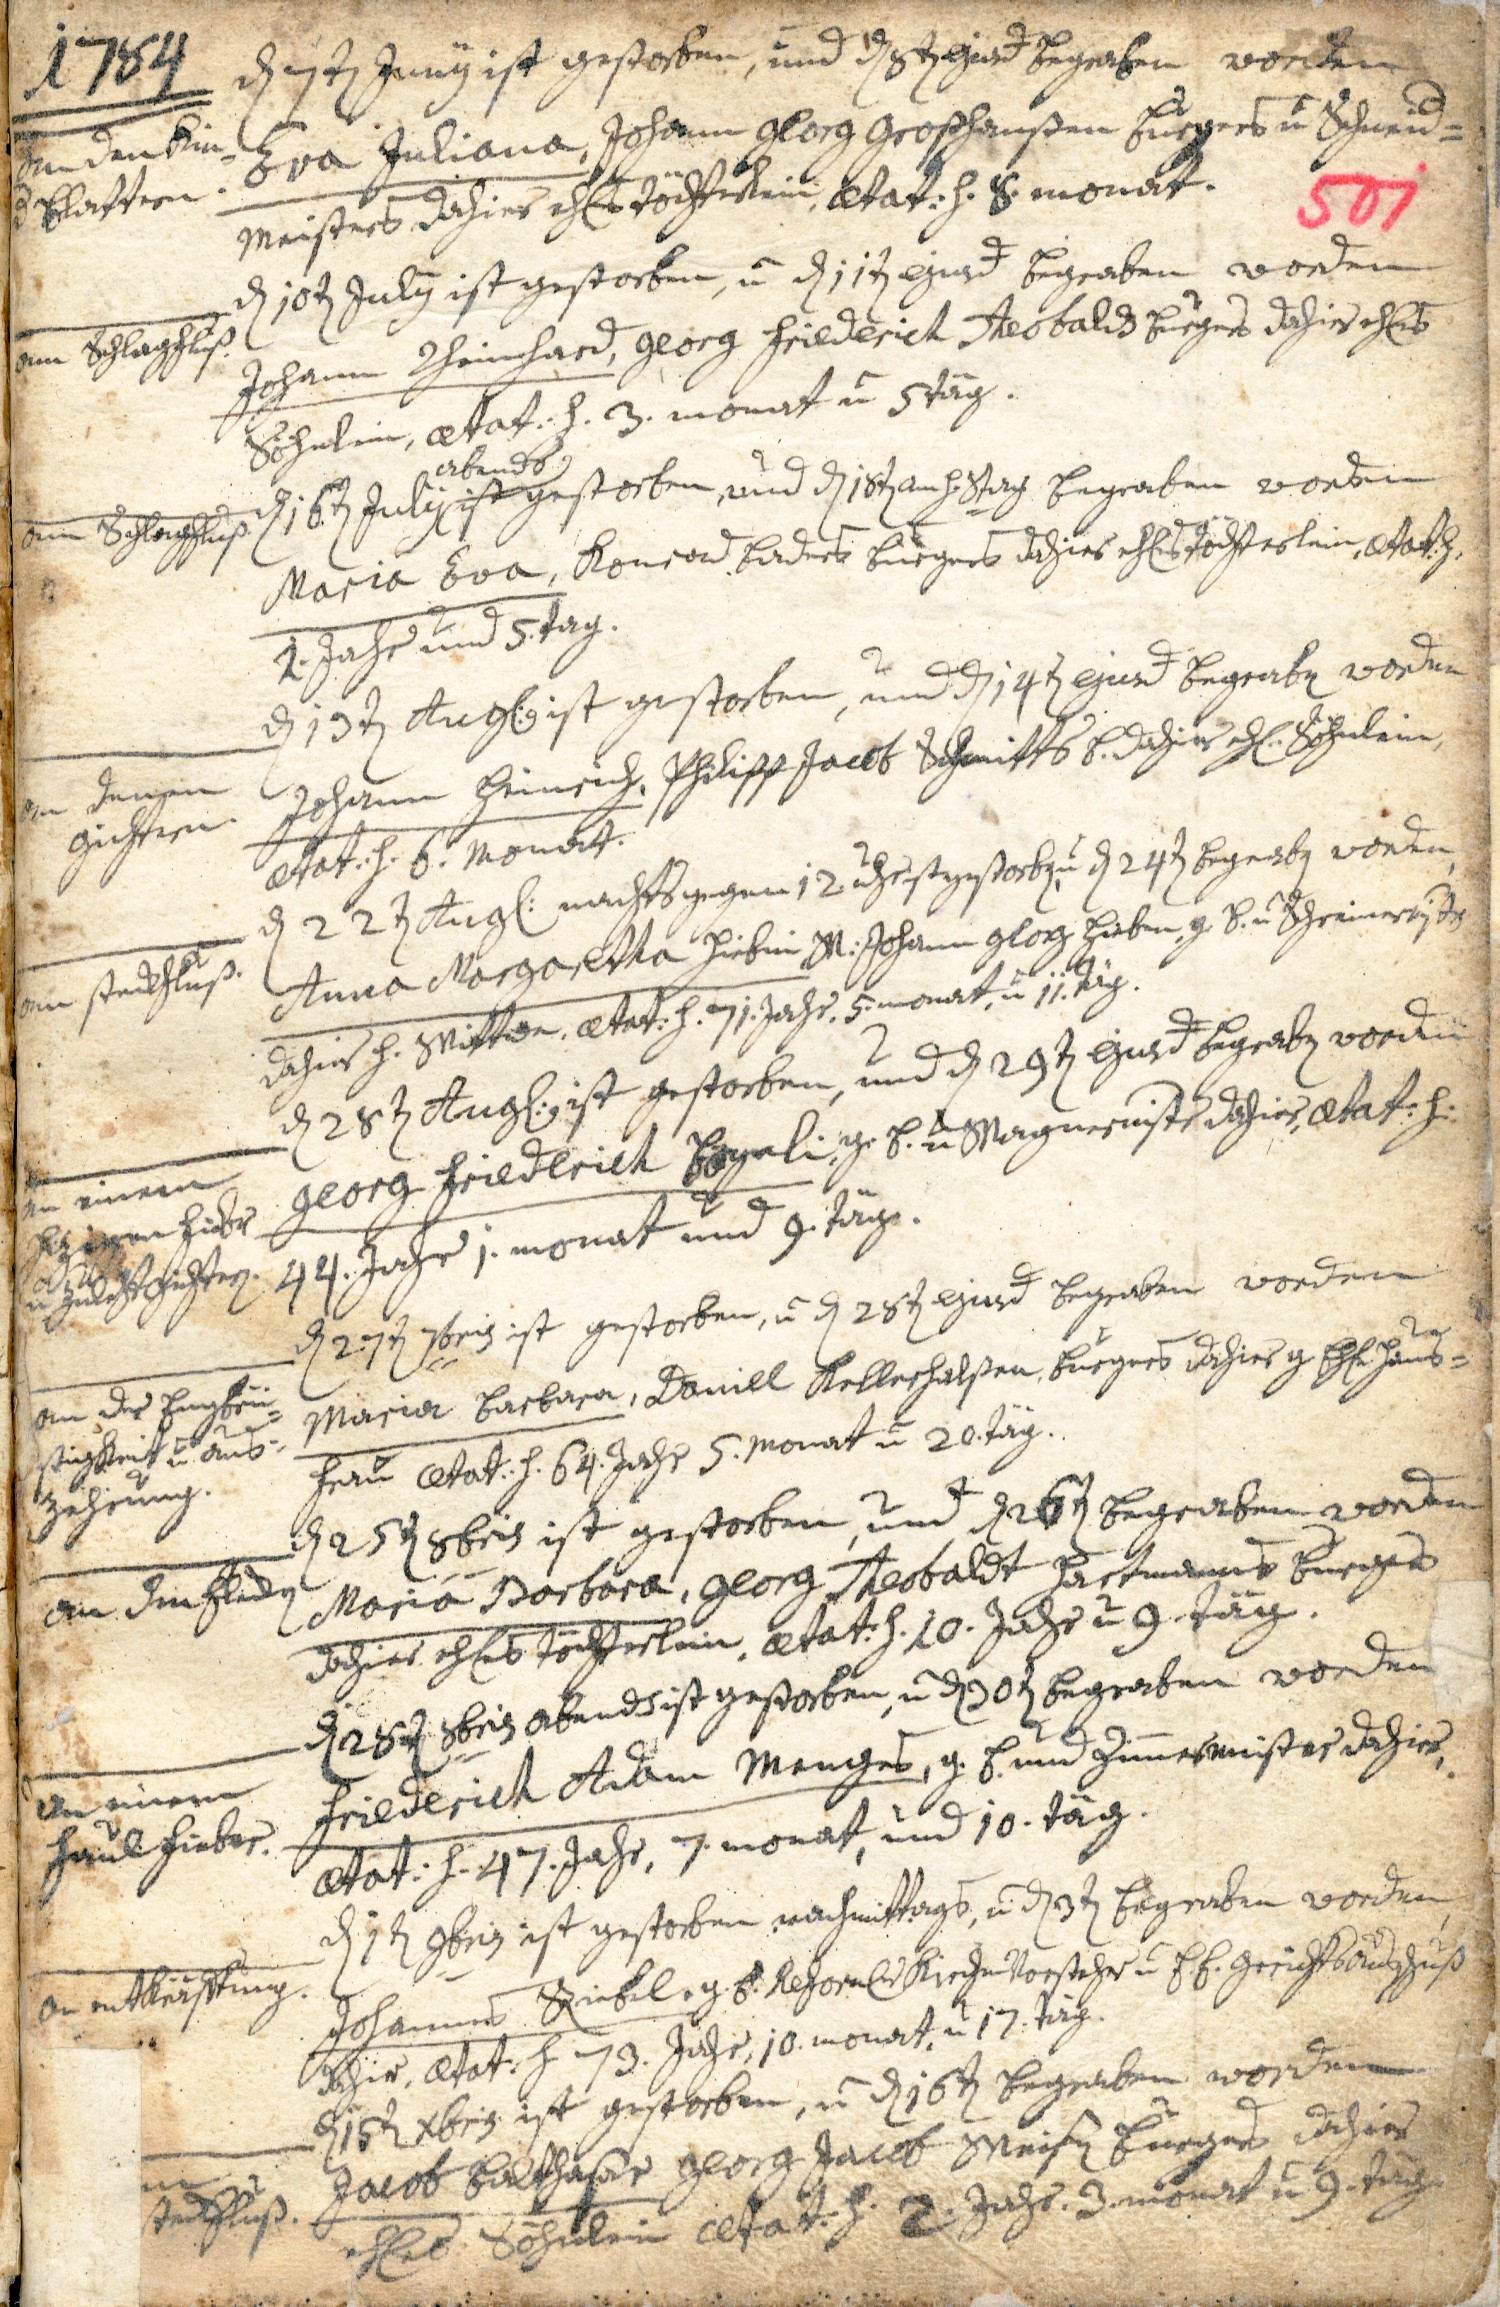 1784
501
d 7t Junÿ ist gestorben, und d 8t ejusd begraben worden
an den Kin-
d Blattern.
Eva Juliana, Johann Georg Großhansen burgers u Schneid=
Meisters dahier ehl. töchterlein, ætat: h. 8. monat.
d 10t Julÿ ist gestorben, u d 11t ejusd begraben worden
am Schlagfluß.
Johann Rheinhard, Georg Friederich Theobalds burgers dahier ehles
Söhnlein, ætat: h. 3. monat u 5 täg.
abends
d 16t Julÿ ist gestorben, und d 18t am h. Stag begraben worden
am Schlagfluß.
Maria Eva, Konrad Baders burgers dahier ehles töchterlein, ætat: h.
1. Jahr und 5. tag.
d 13t Augst: ist gestorben, und d 14t ejusd begrabn worden
an denen
gichtern.
Johann Heinrich, Philipp Jacob Schmitts b. dahier ehl. Söhnlein,
ætat: h. 6. Monat.
d 22t Augst: nachts gegen 12 uhr ist gestorbn, u d 24t begrabn worden,
am steckfluß.
Anna Margaretha M: Johann Georg g. b. u Schreinermstr
dahier h. Wittwe, ætat: h. 71. Jahr, 5. monat, u 11. täg.
d 28t Augst: ist gestorben, und d 29t ejusd begrabn worden
an einem
hitzigen fieber
u zulezt gichter.
Georg Friederich Bögeli, g. b. u Wagnermstr dahier, ætat: h:
44. Jahr 1. monat und 9. täg.
d 27t 7bris ist gestorben, u d 28t ejusd begraben worden
an der Engbrü=
stigkeit u aus=
zehrung.
Maria Barbara, Daniell Kellerhalsen, burgers dahier g. Ehl. Haus=
frau ætat: h. 64. Jahr 5. Monat u 20. täg.
d 25t 8bris ist gestorben, und d 26t begraben worden
Maria Barbara, Georg Theobaldt Hartmanns burgers
dahier ehles töchterlein, ætat: h. 10. Jahr u 9. täg.
d 28t 8bris abends ist gestorben, u d 30t begraben worden
an einem
faul fieber.
Friederich Adam Menges, g. b. und Zimmermeister dahier,
ætat: h. 47. Jahr, 7. monat, und 10. täg.
d 1t 9bris ist gestorben nachmittags, u d 3t begraben worden,
an entkräftung.
Johannes Riebel, g. b. Reformler Kirchenvorsteher u E. E. Gerichts
dahier, ætat: h 73. Jahr, 10. monat, u 17. täg.
d 15t Xbris ist gestorben, u d 16t begraben worden
steckfluß.
Jacob Balthasar Georg Jacob Weisn burgers dahier
ehles Söhnlein ætat: h. 2. Jahr. 3. monat u 9. täg